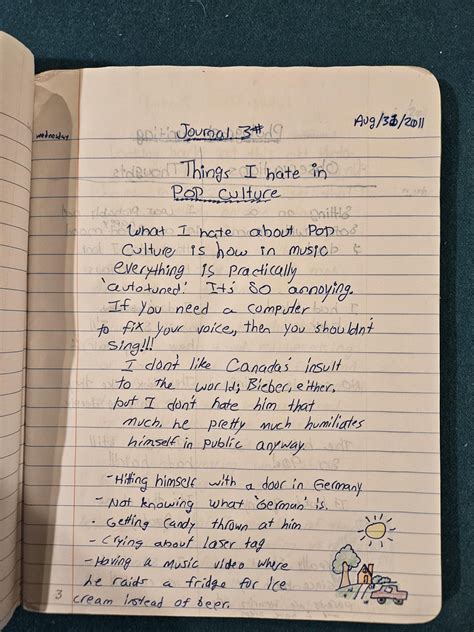 Aug/31/2011
wednesday
Journal 3#
Things I hate in
POP CULTURE
What I hate about POP
Culture is how in music
everything is practically
'autotuned'. It's SO annoying.
If you need a computer
to fix your voice, then you shouldn't
sing!!!
I don't like Canada's insult
to the world; Bieber, either,
but I don't hate him that
much, he pretty much humiliates
himself in public anyway.
-Hitting himself with a door in Germany
- Not knowing what 'German' is.
- Getting candy thrown at him
- Crying about laser tag
-Having a music video where
he raids a fridge for Ice
cream instead of beer.
3